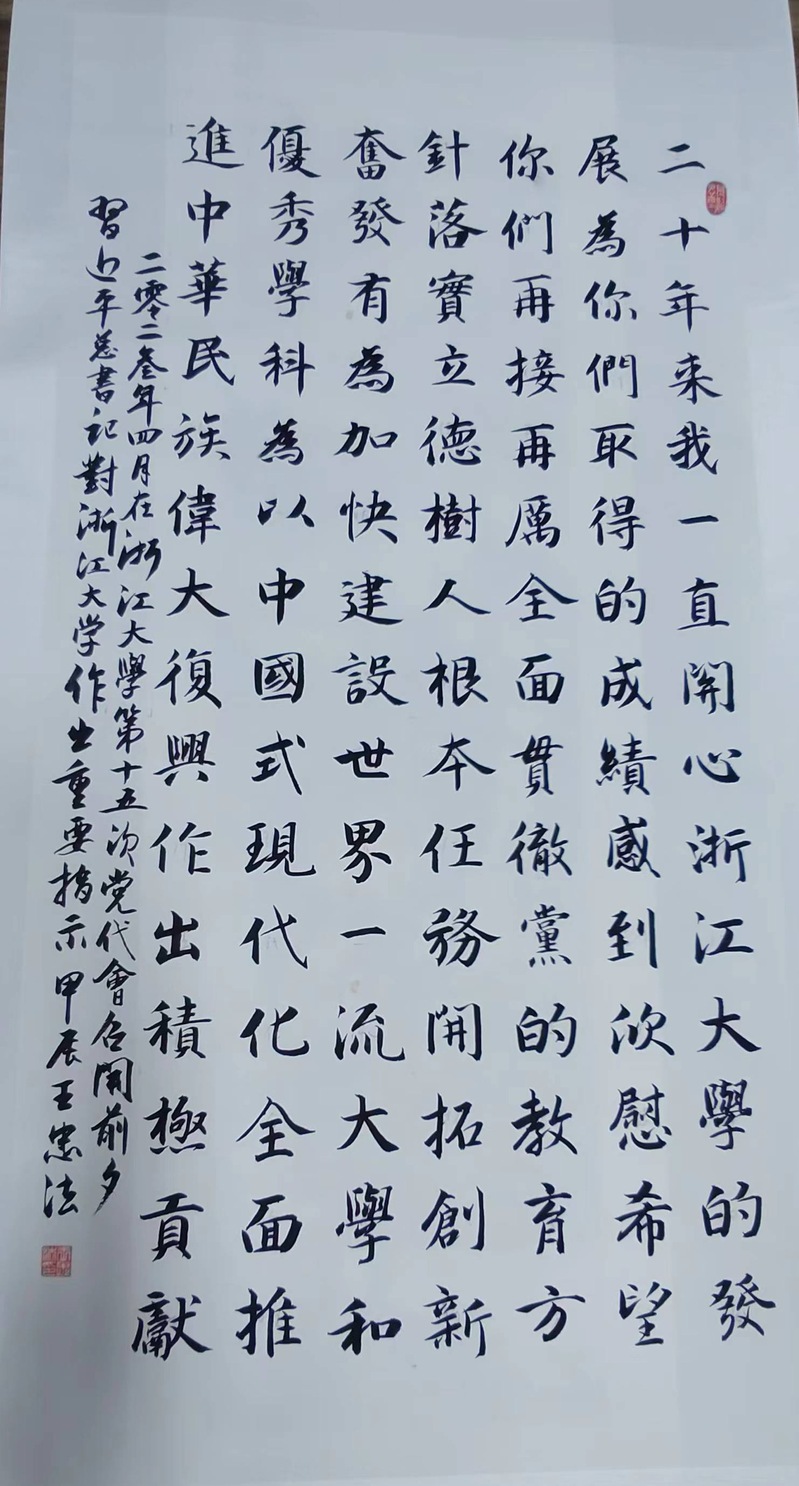 二十年来我一直関心浙江大學的發
展為你們取得的成績感到欣慰希望
你們再接再厲全面貫徹黨的教育方
針落實立德樹人根本任務開拓創新
奮發有為加快建設世界一流大學和
優秀學科為以中國式現代化全面推
進中華民族偉大復興作出積極貢獻
二零二叁年四月在浙江大學第十五次党代會召開前夕
習近平总書記對浙江大学作出重要指示甲辰王忠法